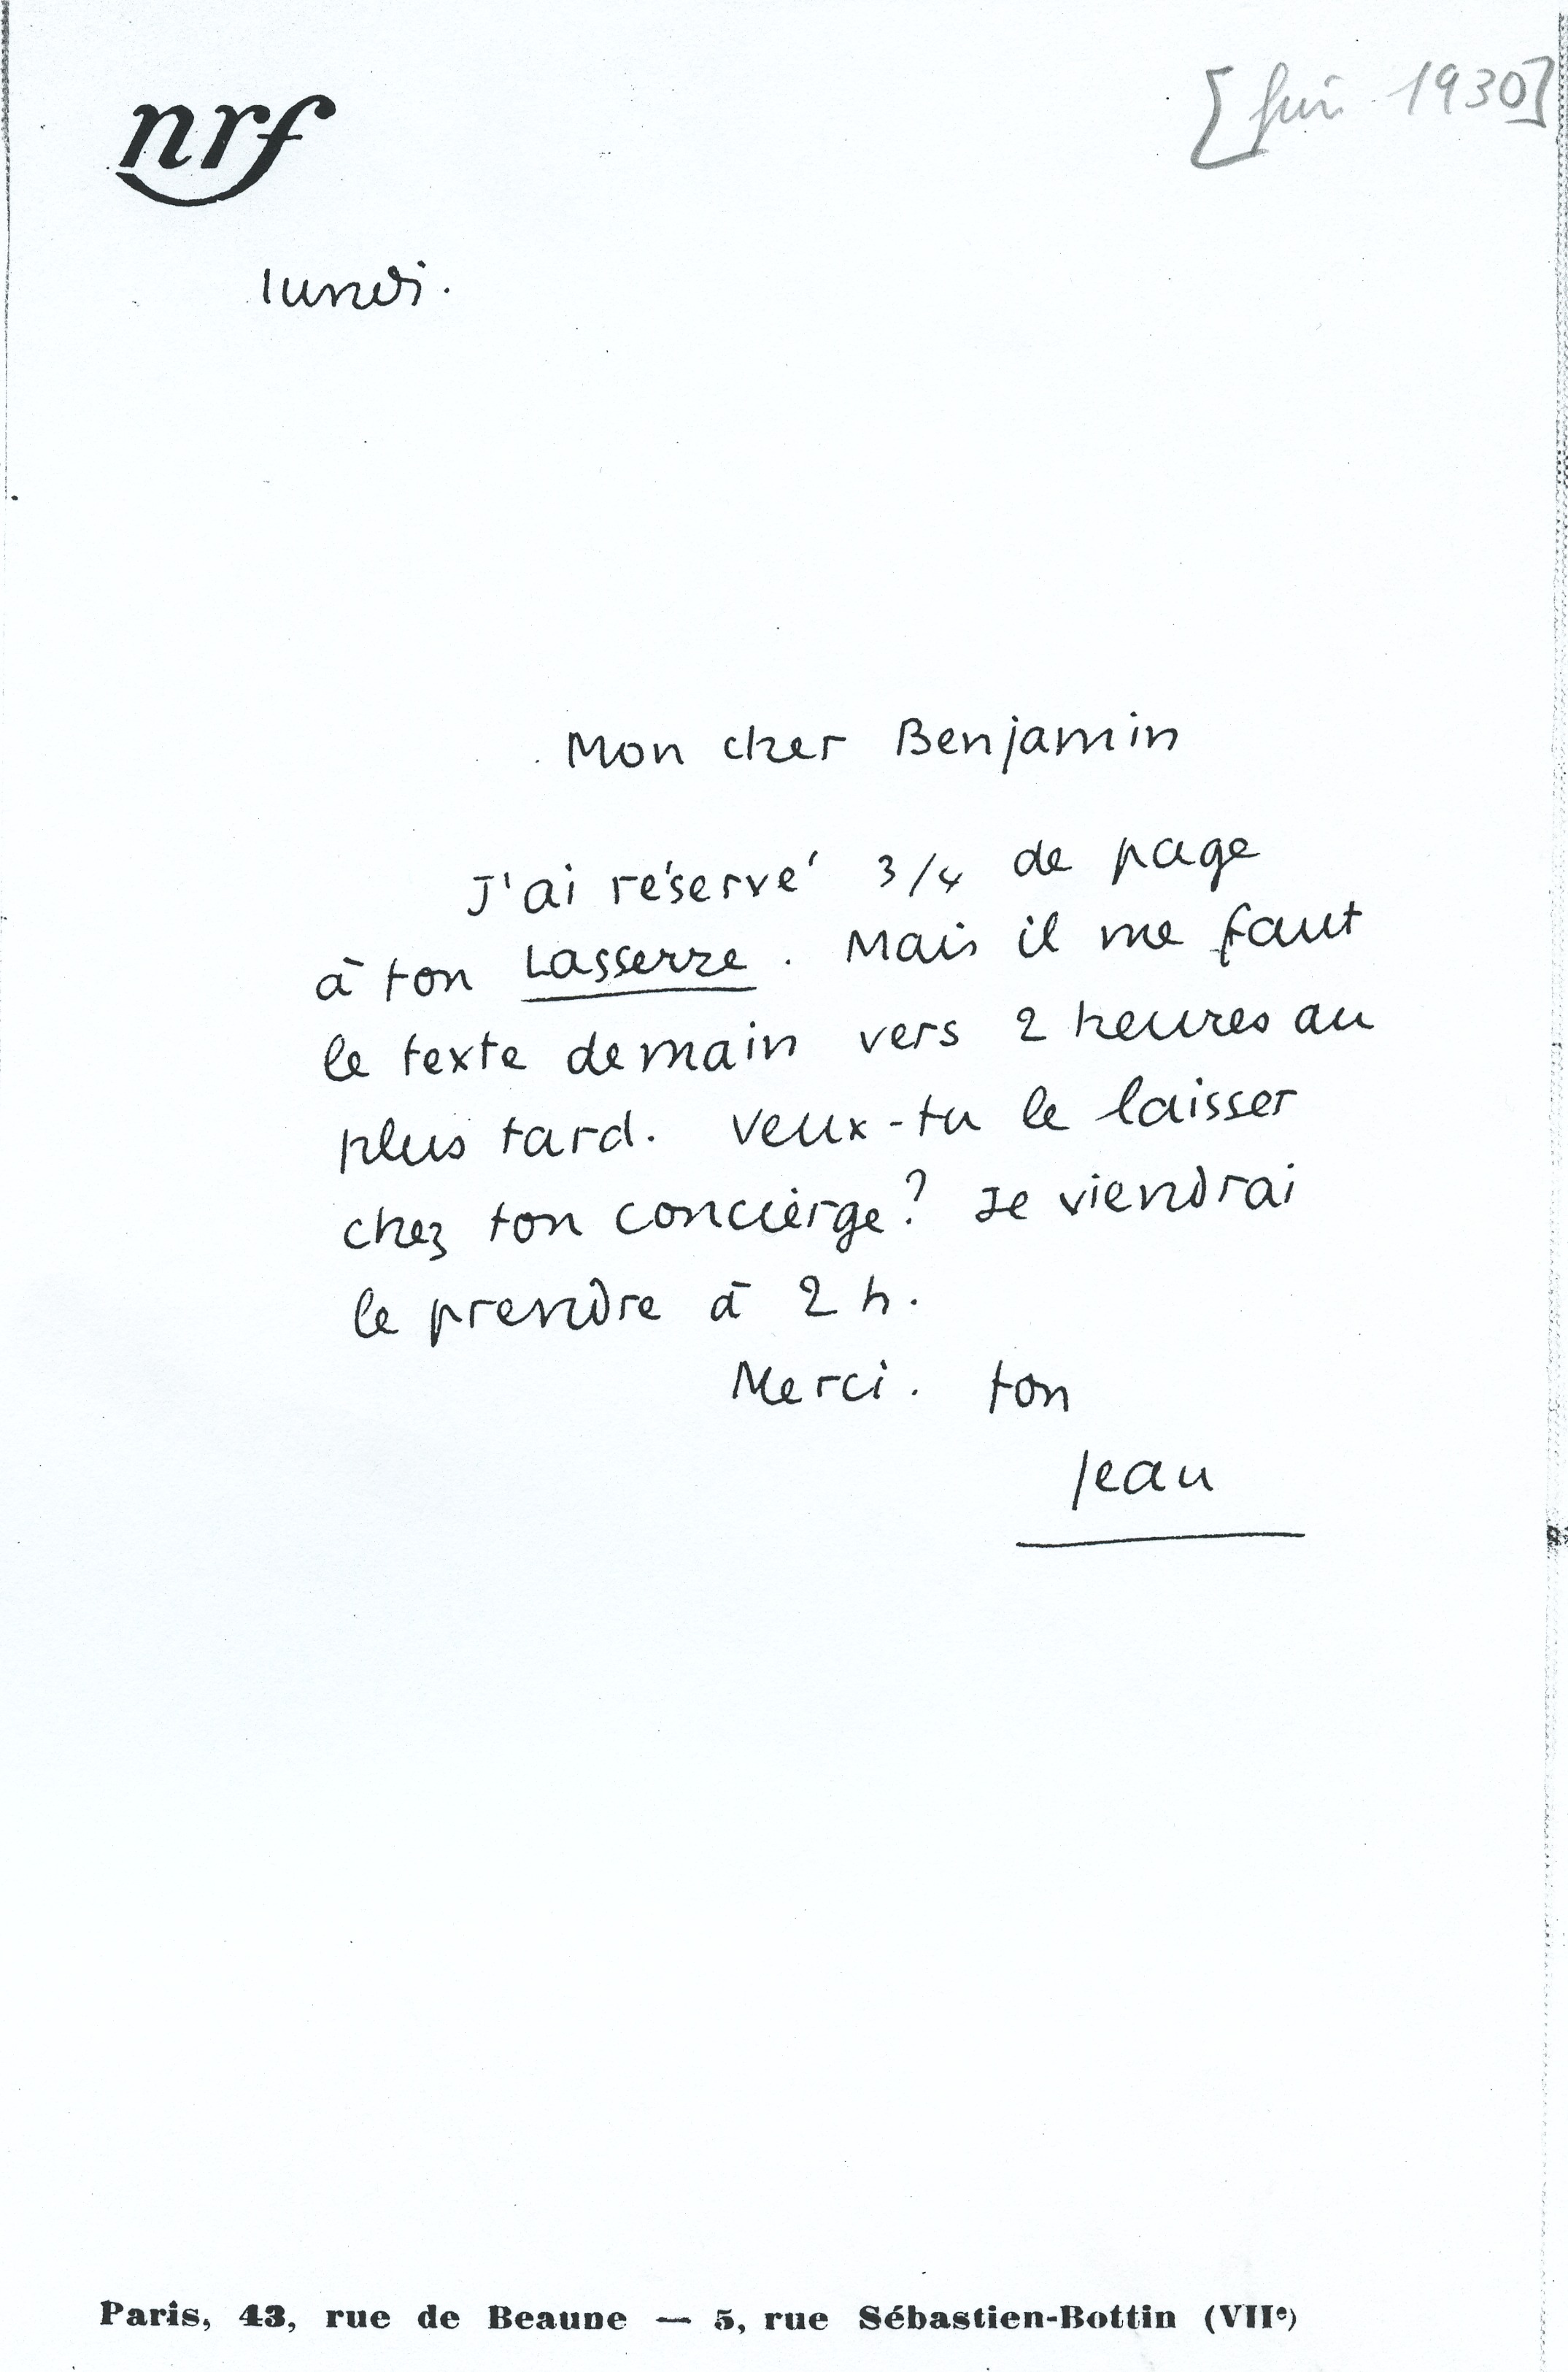 nrf
[Juin 1930]
lundi.
Mon cher Benjamin
J'ai réservé 3/4 de page
à ton Lasserre. Mais il me faut
le texte demain vers 2 heures au
plus tard. Veux-tu le laisser
chez ton concierge? Je viendrai
le prendre à 2 h.
Merci. ton
Jean
Paris, 43, rue de Beaune — 5, rue Sébastien-Bottin (VIIe)